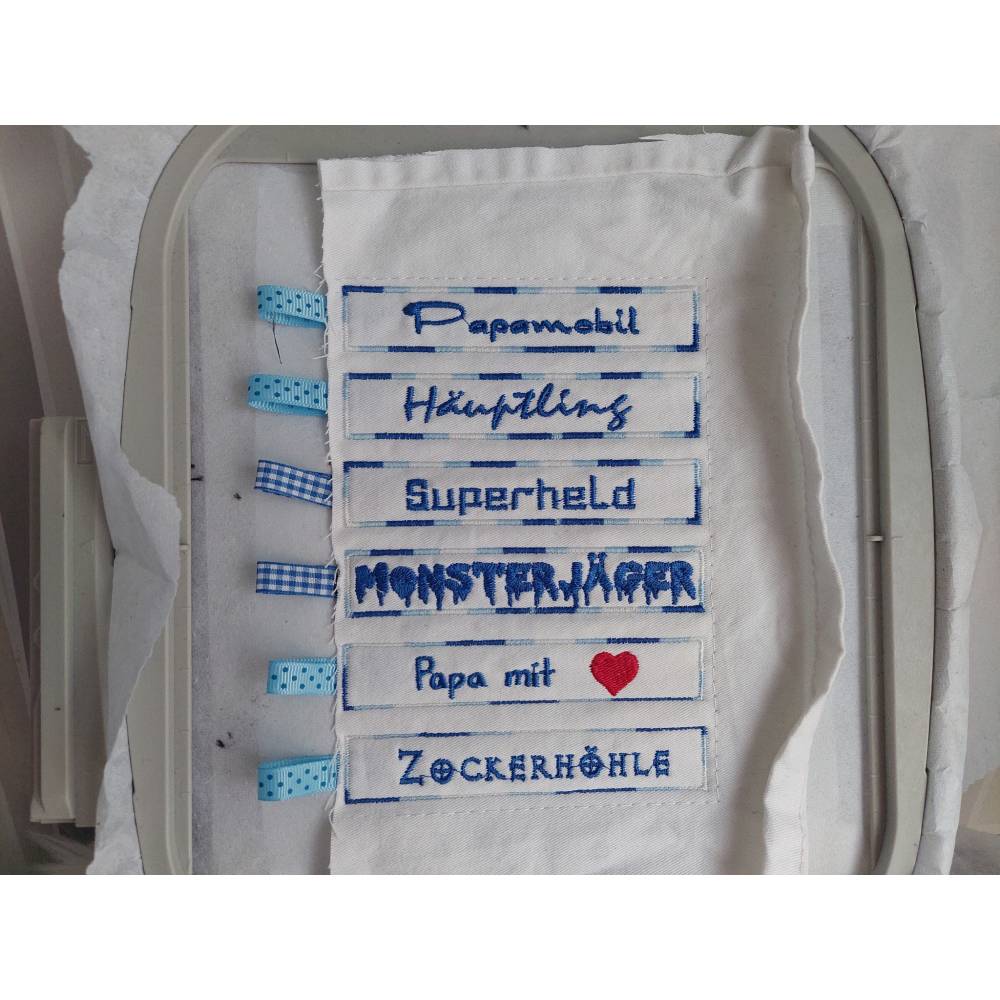 Papamobil
Häuptling
Superheld
MONSTERJÄGER
Papa mit
ZOCKERHÖHLE